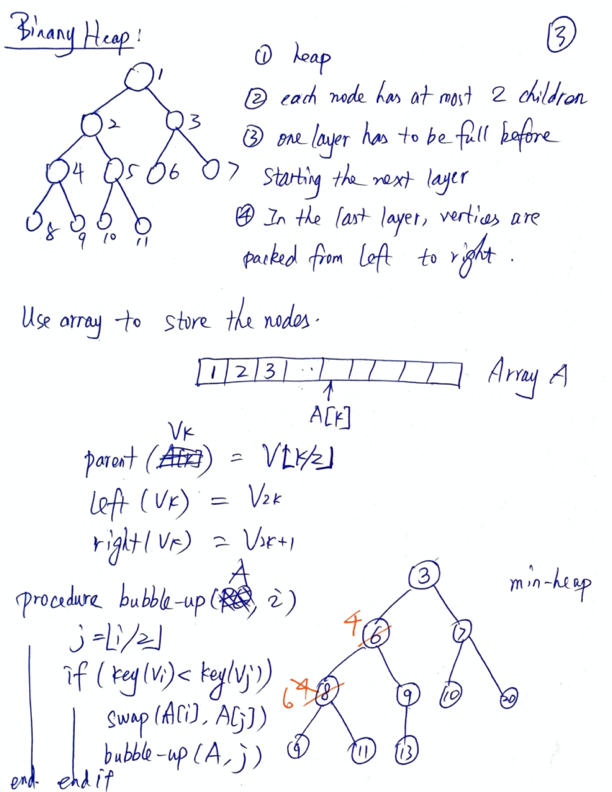 Binary Heap:
③
① heap
② each node has at most 2 children
③ one layer has to be full before
starting the next layer
④ In the last layer, vertices are
packed from left to right.
1
2 3
4 5 6 7
8 9 10 11
Use array to store the nodes.
1 2 3 ...
Array A
A[k]
parent (Vk) = V⌊k/2⌋
left (Vk) = V2k
right (Vk) = V2k+1
procedure bubble-up(A, i)
j = ⌊i/2⌋
if (key(Vi) < key(Vj))
swap(A[i], A[j])
bubble-up(A, j)
end. end if
min-heap
3
4 6 7
6 4 8 9 10 20
9 11 13